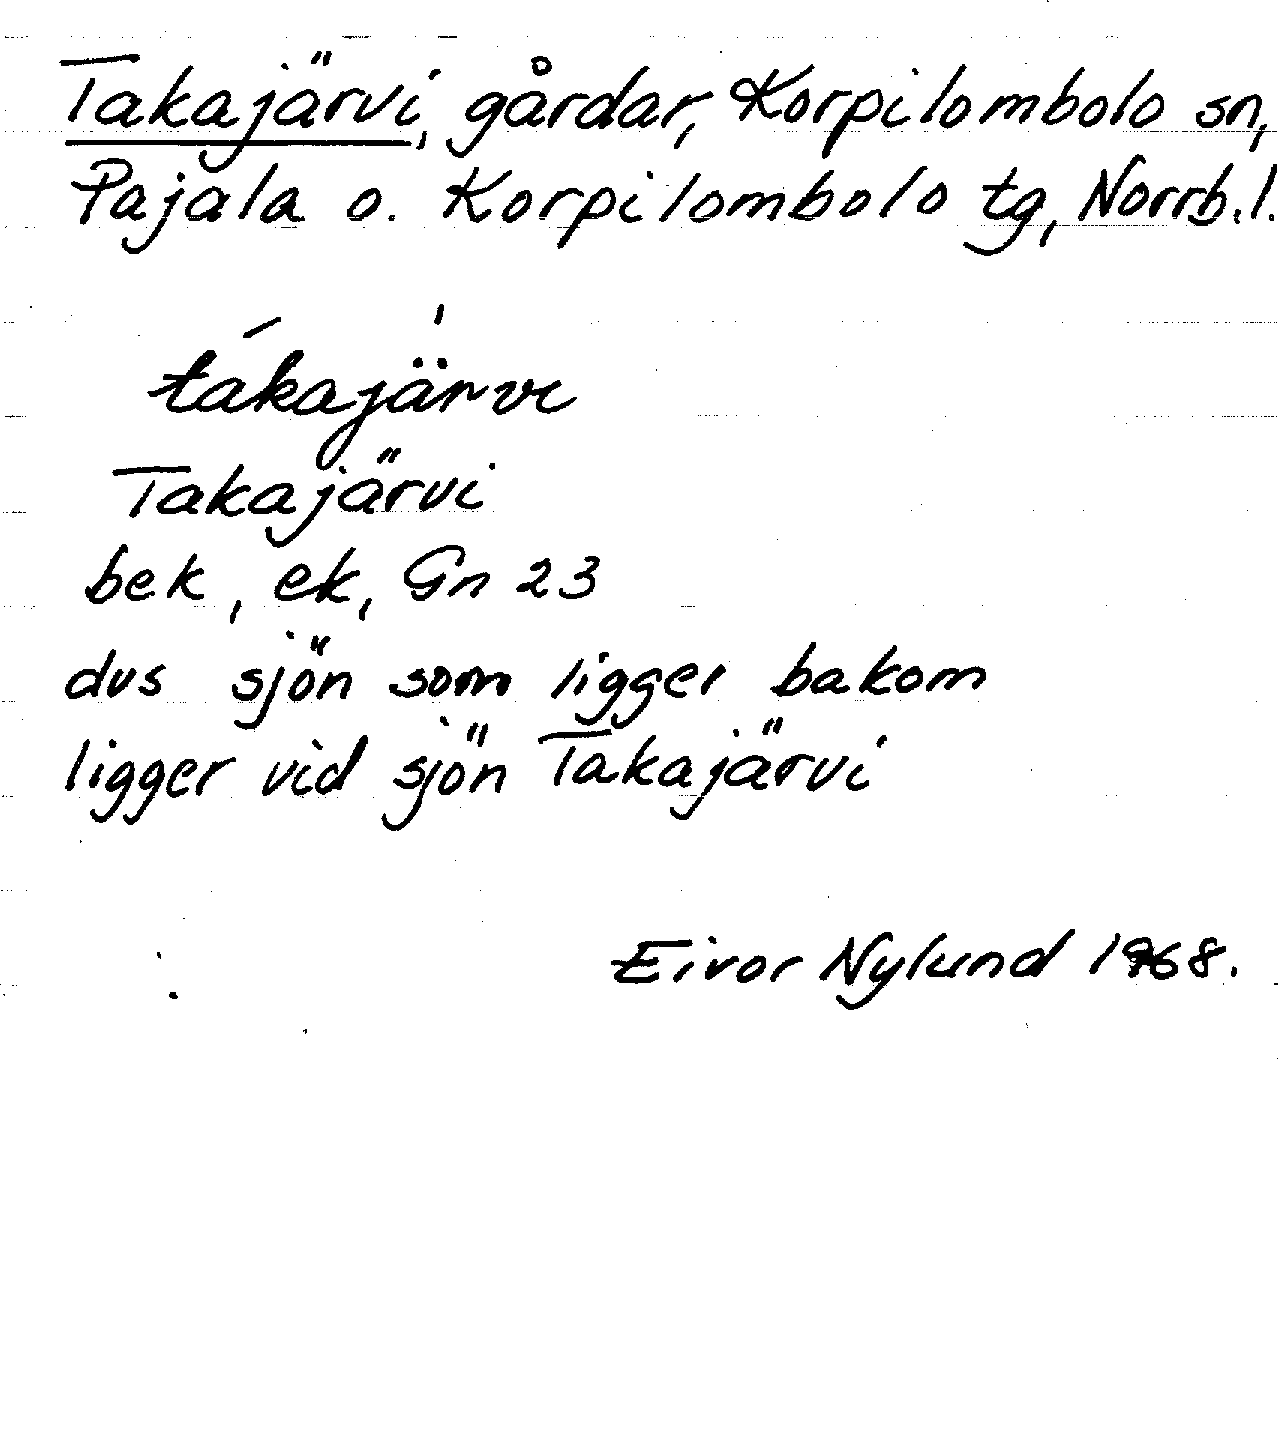 Takajärvi, gårdar, Korpilombolo sn,
Pajala o. Korpilombolo tg, Norrb.l.
tákajä́rvi
Takajärvi
bek, ek, Gn 23
dvs sjön som ligger bakom
ligger vid sjön Takajärvi
Eivor Nylund 1968.